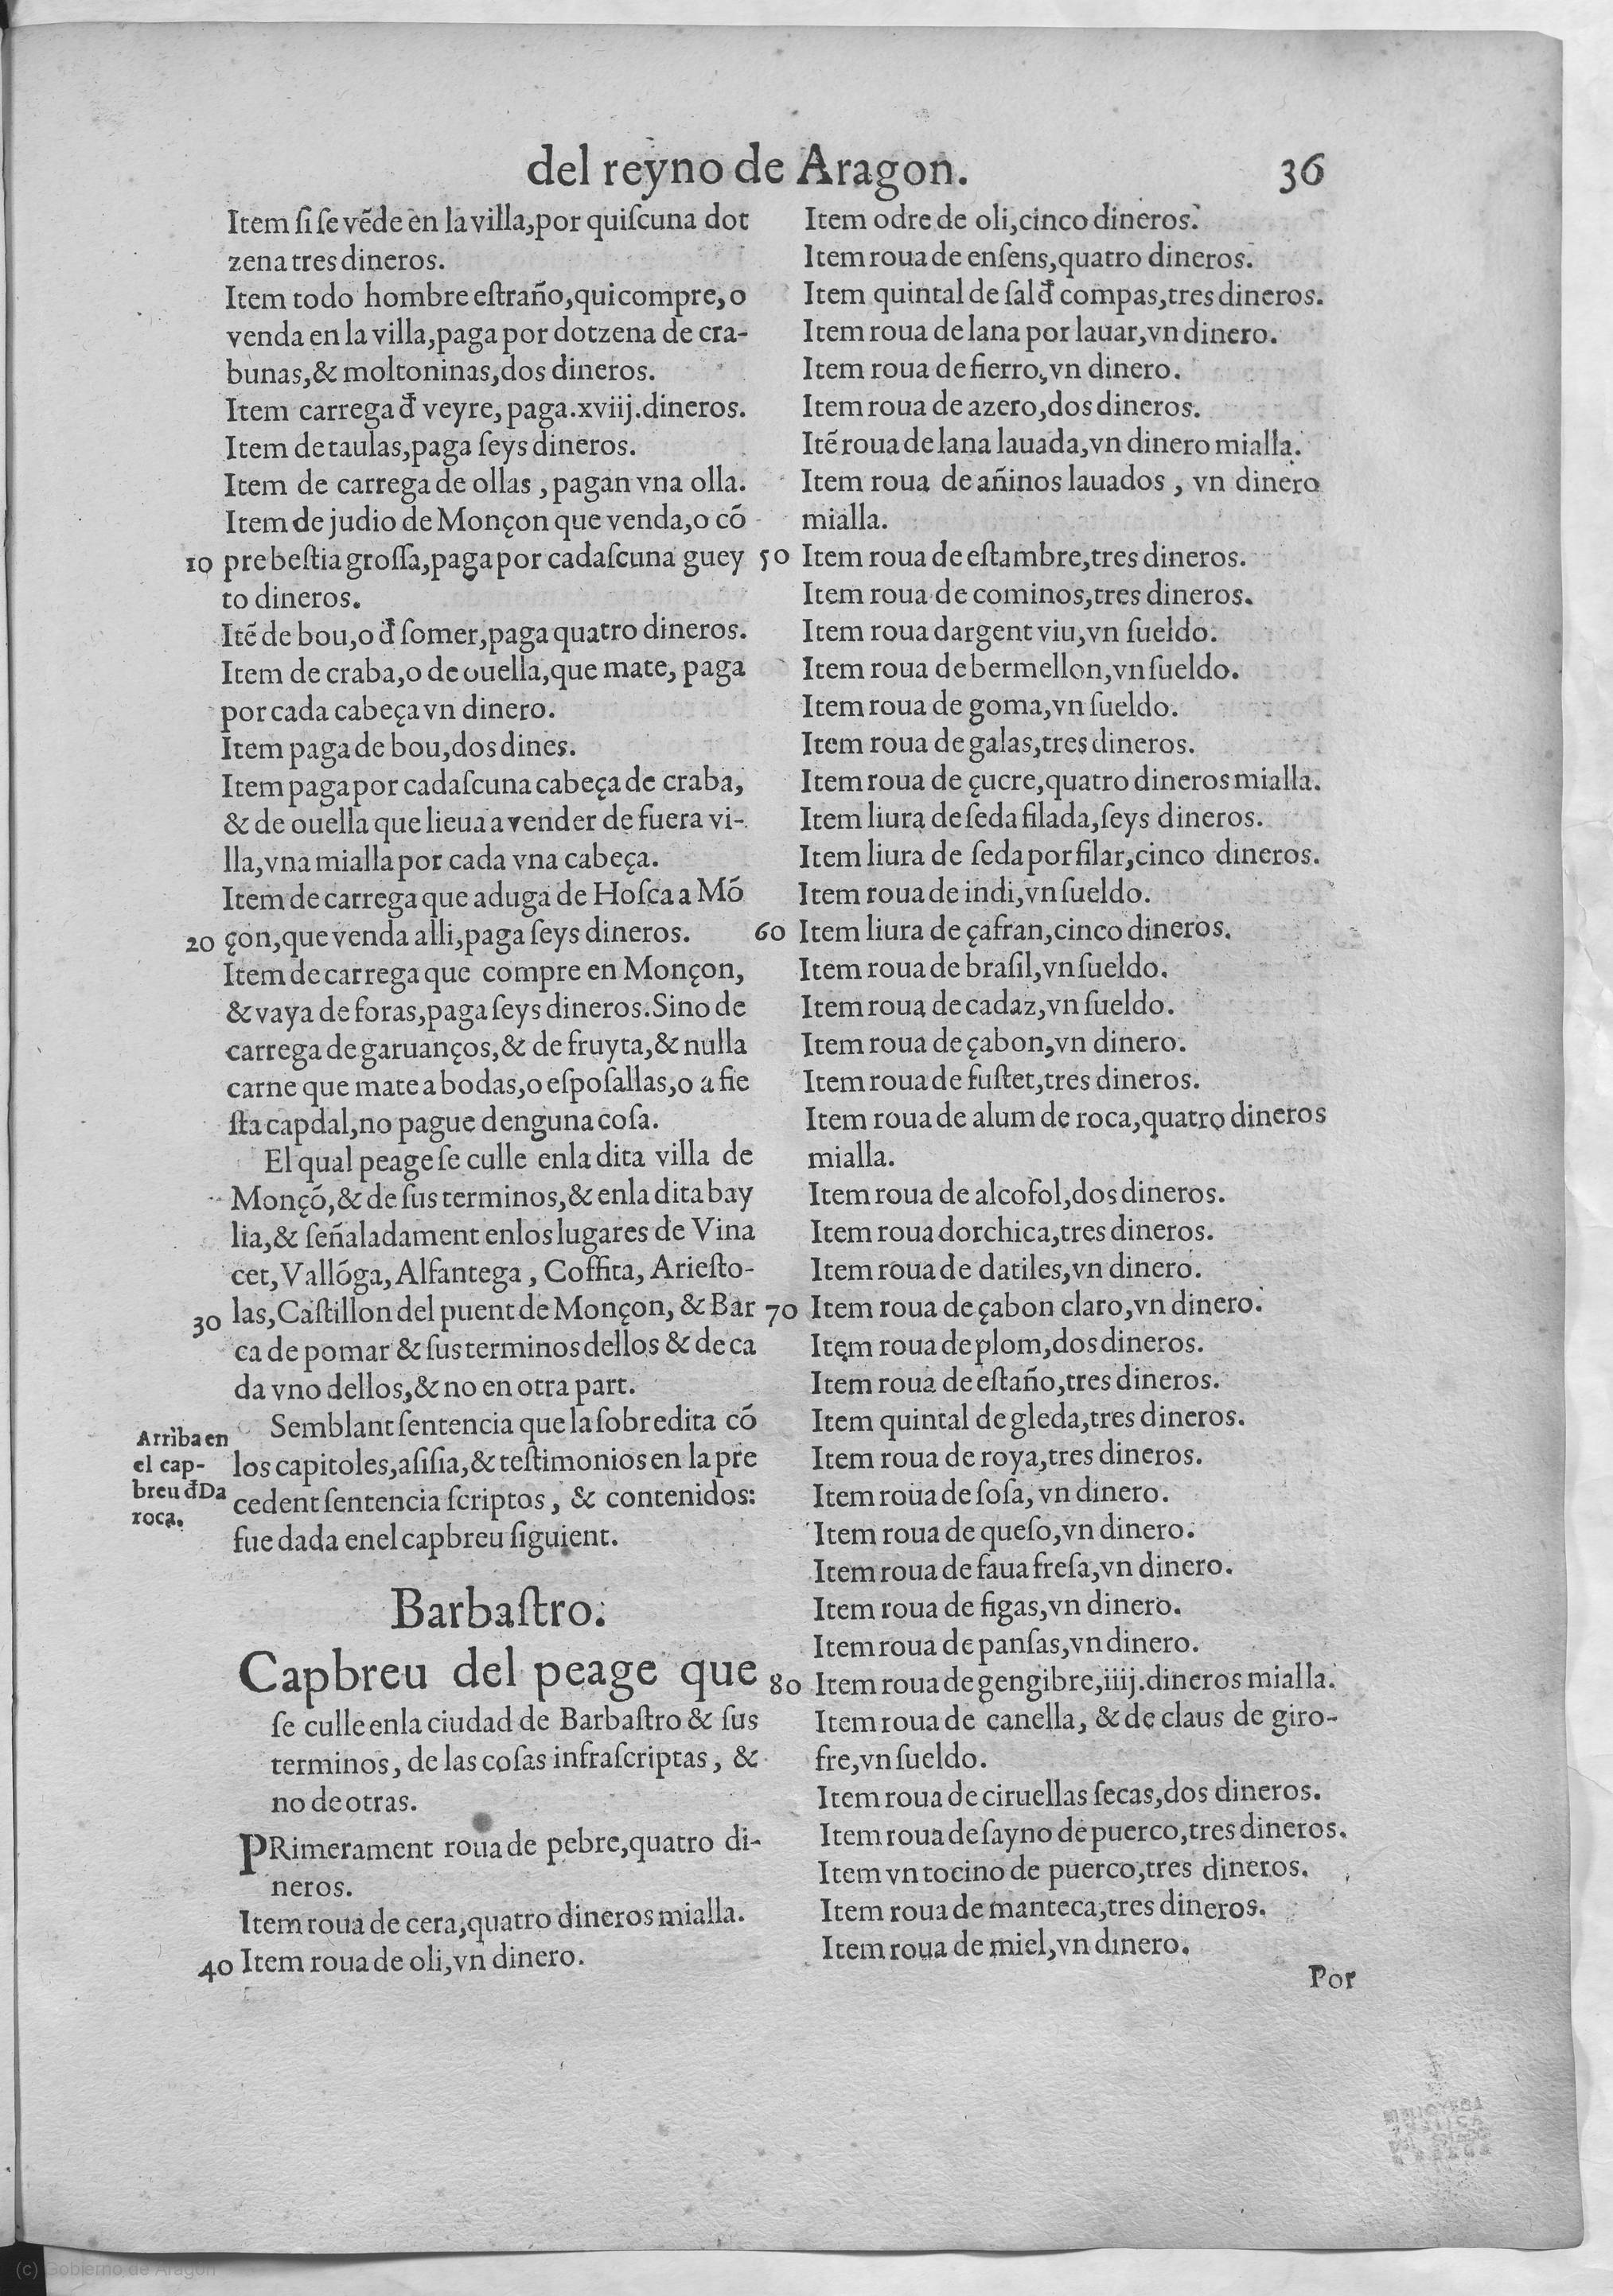 del reyno de Aragon.
36
Item ſi ſe vẽde en la villa, por quiſcuna dot
zena tres dineros.
Item todo hombre eſtraño, qui compre, o
venda en la villa, paga por dotzena de cra-
bunas, & moltoninas, dos dineros.
Item carrega đ veyre, paga .xviij. dineros.
Item de taulas, paga ſeys dineros.
Item de carrega de ollas , pagan vna olla.
Item de judio de Monçon que venda, o cõ
10 pre beſtia groſſa, paga por cadaſcuna guey
to dineros.
Itẽ de bou, o đ ſomer, paga quatro dineros.
Item de craba, o de ouella, que mate, paga
por cada cabeça vn dinero.
Item paga de bou, dos dines.
Item paga por cadaſcuna cabeça de craba,
& de ouella que lieua a vender de fuera vi-
lla, vna mialla por cada vna cabeça.
Item de carrega que aduga de Hoſca a Mõ
20 çon, que venda alli, paga ſeys dineros.
Item de carrega que compre en Monçon,
& vaya de foras, paga ſeys dineros. Sino de
carrega de garuanços, & de fruyta, & nulla
carne que mate a bodas, o eſpoſallas, o a fie
ſta capdal, no pague denguna coſa.
El qual peage ſe culle enla dita villa de
Monçõ, & de ſus terminos, & enla dita bay
lia, & ſeñaladament enlos lugares de Vina
cet, Vallõga, Alfantega , Coffita, Arieſto-
30 las, Caſtillon del puent de Monçon, & Bar
ca de pomar & ſus terminos dellos & de ca
da vno dellos, & no en otra part.
Semblant ſentencia que la ſobredita cõ
los capitoles, aſiſia, & teſtimonios en la pre
cedent ſentencia ſcriptos , & contenidos:
fue dada enel capbreu ſiguient.
Arriba en
el cap-
breu đ Da
roca.
Barbaſtro.
Capbreu del peage que
ſe culle enla ciudad de Barbaſtro & ſus
terminos, de las coſas infraſcriptas , &
no de otras.
PRimerament roua de pebre, quatro di-
neros.
Item roua de cera, quatro dineros mialla.
40 Item roua de oli, vn dinero.
Item odre de oli, cinco dineros.
Item roua de enſens, quatro dineros.
Item quintal de ſal đ compas, tres dineros.
Item roua de lana por lauar, vn dinero.
Item roua de fierro, vn dinero.
Item roua de azero, dos dineros.
Itẽ roua de lana lauada, vn dinero mialla.
Item roua de añinos lauados , vn dinero
mialla.
50 Item roua de eſtambre, tres dineros.
Item roua de cominos, tres dineros.
Item roua dargent viu, vn ſueldo.
Item roua de bermellon, vn ſueldo.
Item roua de goma, vn ſueldo.
Item roua de galas, tres dineros.
Item roua de çucre, quatro dineros mialla.
Item liura de ſeda filada, ſeys dineros.
Item liura de ſeda por filar, cinco dineros.
Item roua de indi, vn ſueldo.
60 Item liura de çafran, cinco dineros.
Item roua de braſil, vn ſueldo.
Item roua de cadaz, vn ſueldo.
Item roua de çabon, vn dinero.
Item roua de fuſtet, tres dineros.
Item roua de alum de roca, quatro dineros
mialla.
Item roua de alcofol, dos dineros.
Item roua dorchica, tres dineros.
Item roua de datiles, vn dinero.
70 Item roua de çabon claro, vn dinero.
Item roua de plom, dos dineros.
Item roua de eſtaño, tres dineros.
Item quintal de gleda, tres dineros.
Item roua de roya, tres dineros.
Item roua de ſoſa, vn dinero.
Item roua de queſo, vn dinero.
Item roua de faua freſa, vn dinero.
Item roua de figas, vn dinero.
Item roua de panſas, vn dinero.
80 Item roua de gengibre, iiij. dineros mialla.
Item roua de canella, & de claus de giro-
fre, vn ſueldo.
Item roua de ciruellas ſecas, dos dineros.
Item roua de ſayno de puerco, tres dineros.
Item vn tocino de puerco, tres dineros.
Item roua de manteca, tres dineros.
Item roua de miel, vn dinero.
Por
(c) Gobierno de Aragón